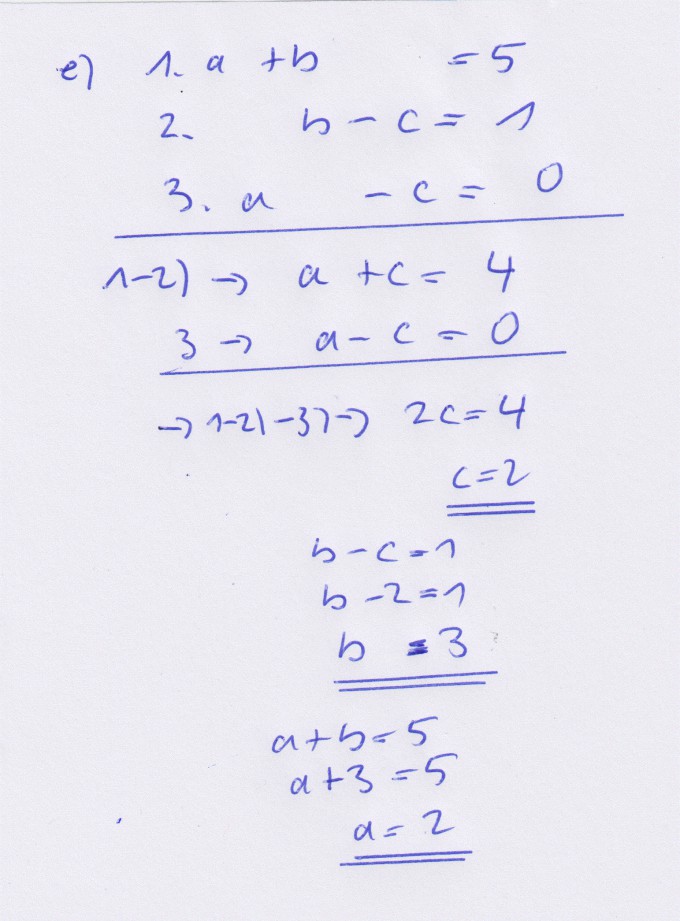 e) 1. a + b = 5
2. b - c = 1
3. a - c = 0
1-2) → a + c = 4
3 → a - c = 0
→ 1-2) -3) → 2c = 4
c = 2
b - c = 1
b - 2 = 1
b = 3
a + b = 5
a + 3 = 5
a = 2